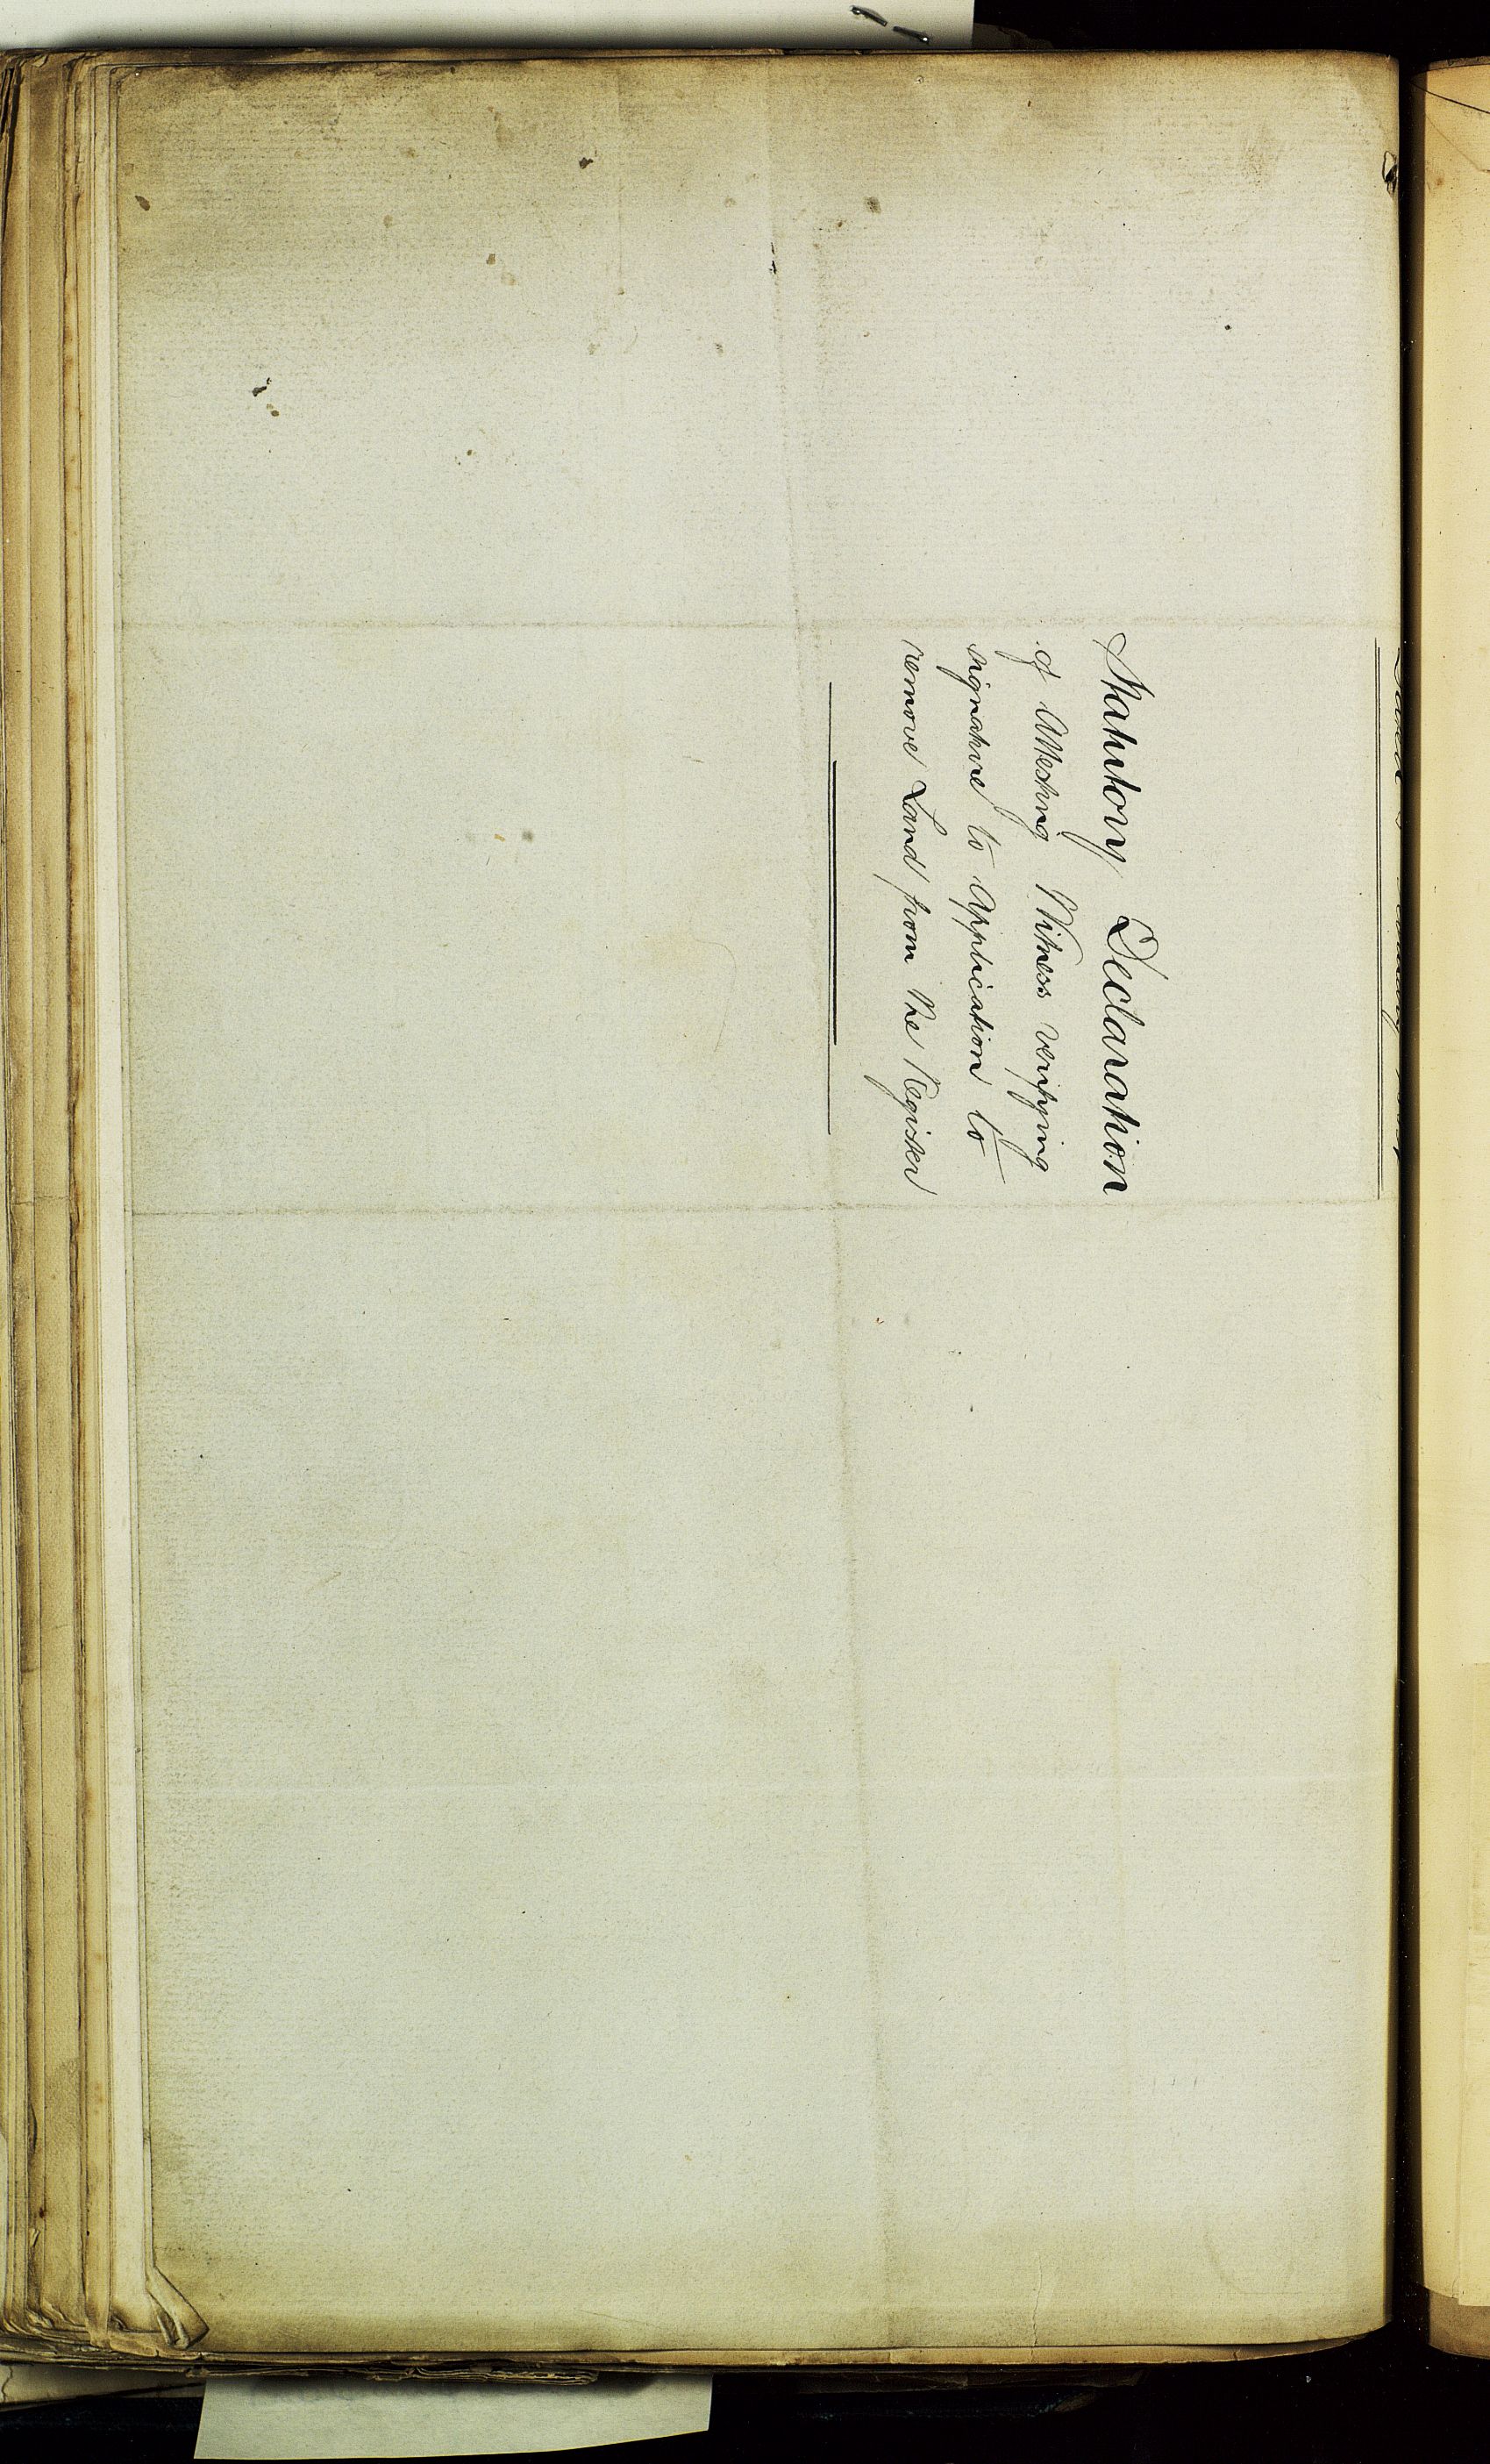 Statutory Declaration
of Attesting Witness verifying
signature to Application to
remove Land from the Register